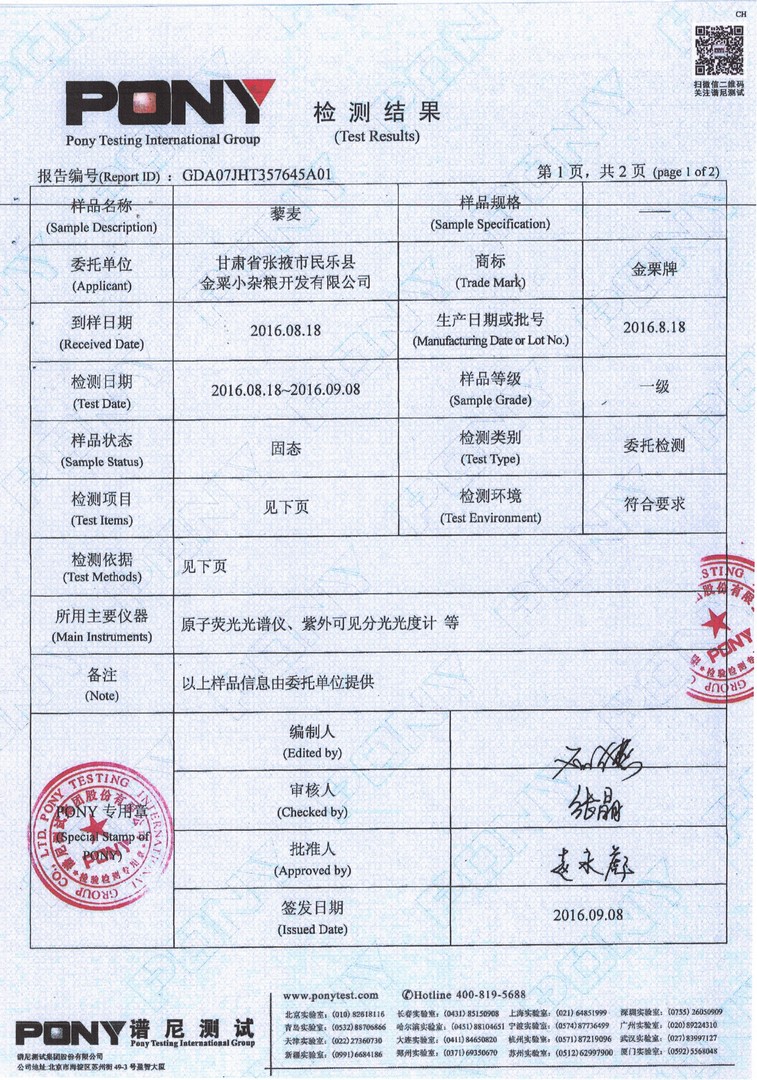 CH
扫微信二维码
关注谱尼测试
PONY
Pony Testing International Group
检测结果
(Test Results)
报告编号(Report ID) : GDA07JHT357645A01
第 1 页，共 2 页 (page 1 of 2)
样品名称
(Sample Description)
藜麦
样品规格
(Sample Specification)
——
委托单位
(Applicant)
甘肃省张掖市民乐县
金粟小杂粮开发有限公司
商标
(Trade Mark)
金粟牌
到样日期
(Received Date)
2016.08.18
生产日期或批号
(Manufacturing Date or Lot No.)
2016.8.18
检测日期
(Test Date)
2016.08.18~2016.09.08
样品等级
(Sample Grade)
一级
样品状态
(Sample Status)
固态
检测类别
(Test Type)
委托检测
检测项目
(Test Items)
见下页
检测环境
(Test Environment)
符合要求
检测依据
(Test Methods)
见下页
所用主要仪器
(Main Instruments)
原子荧光光谱仪、紫外可见分光光度计 等
备注
(Note)
以上样品信息由委托单位提供
PONY 专用章
(Special Stamp of
PONY)
编制人
(Edited by)
审核人
(Checked by)
张晶
批准人
(Approved by)
签发日期
(Issued Date)
2016.09.08
PONY 谱尼测试
Pony Testing International Group
谱尼测试集团股份有限公司
公司地址:北京市海淀区苏州街 49-3 号盈智大厦
www.ponytest.com ✆Hotline 400-819-5688
北京实验室: (010) 82618116 长春实验室: (0431) 85150908 上海实验室: (021) 64851999 深圳实验室: (0755) 26050909
青岛实验室: (0532) 88706866 哈尔滨实验室: (0451) 88104651 宁波实验室: (0574) 87736499 广州实验室: (020) 89224310
天津实验室: (022) 27360730 大连实验室: (0411) 84650820 杭州实验室: (0571) 87219096 武汉实验室: (027) 83997127
新疆实验室: (0991) 6684186 郑州实验室: (0371) 69350670 苏州实验室: (0512) 62997900 厦门实验室: (0592) 5568048